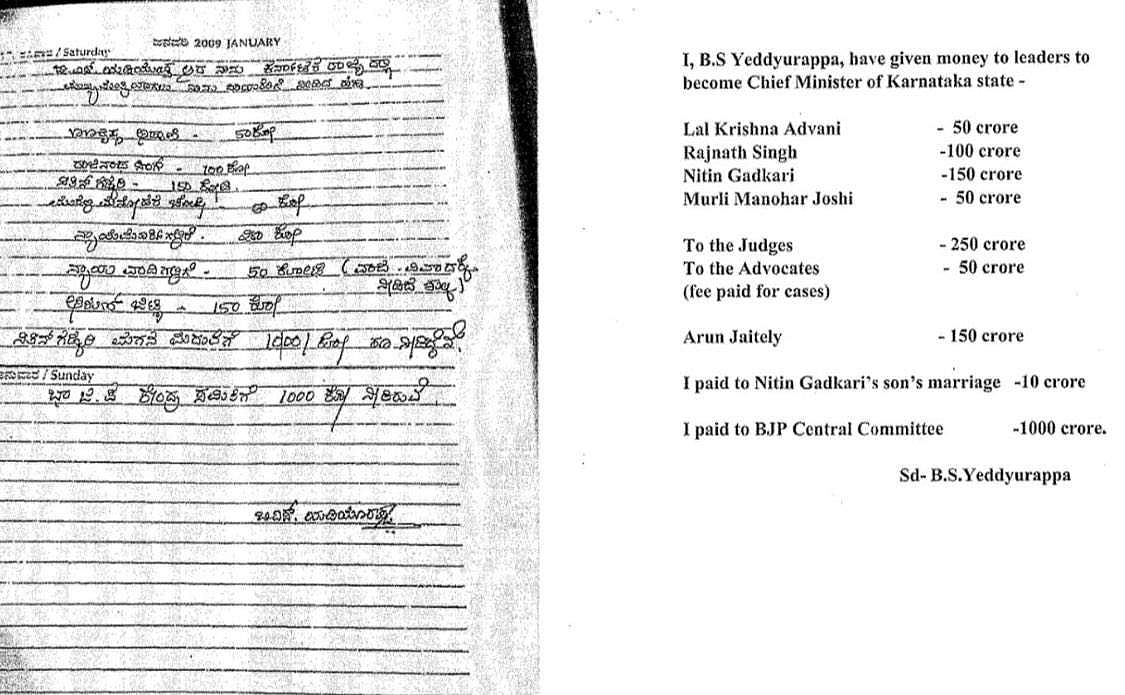 ಜನವರಿ 2009 JANUARY
/ Saturday
ಬಿ.ಎಸ್. ಯಡಿಯೂರಪ್ಪ ಆದ ನಾನು ಕರ್ನಾಟಕ
ಮುಖ್ಯಮಂತ್ರಿಯಾಗಲು ನಾನು ನೀಡಿದ ಹಣ.
ಅಡ್ವಾಣಿ - 50ಕೋ
ಸಿಂಗ್ - 100 ಕೋ
ನಿತಿನ್ ಗಡ್ಕರಿ - 150 ಕೋಟಿ.
ಮನೋಹರ ಜೋಷಿ - ಕೋ
ಕೋ
ನ್ಯಾಯ ವಾದಿಗಳಿಗೆ - 50 ಕೋಟಿ
- 150 ಕೋ
ನಿತಿನ್ ಗಡ್ಕರಿ ಮಗನ ಮದುವೆಗೆ
/ Sunday
ಭಾ ಜ.ಪ ಕೇಂದ್ರ ಸಮಿತಿಗೆ 1000 ಕೋ
ಬಿ.ಎಸ್. ಯಡಿಯೂರಪ್ಪ
I, B.S Yeddyurappa, have given money to leaders to
become Chief Minister of Karnataka state -
Lal Krishna Advani - 50 crore
Rajnath Singh -100 crore
Nitin Gadkari -150 crore
Murli Manohar Joshi - 50 crore
To the Judges - 250 crore
To the Advocates - 50 crore
(fee paid for cases)
Arun Jaitely - 150 crore
I paid to Nitin Gadkari's son's marriage -10 crore
I paid to BJP Central Committee -1000 crore.
Sd- B.S.Yeddyurappa